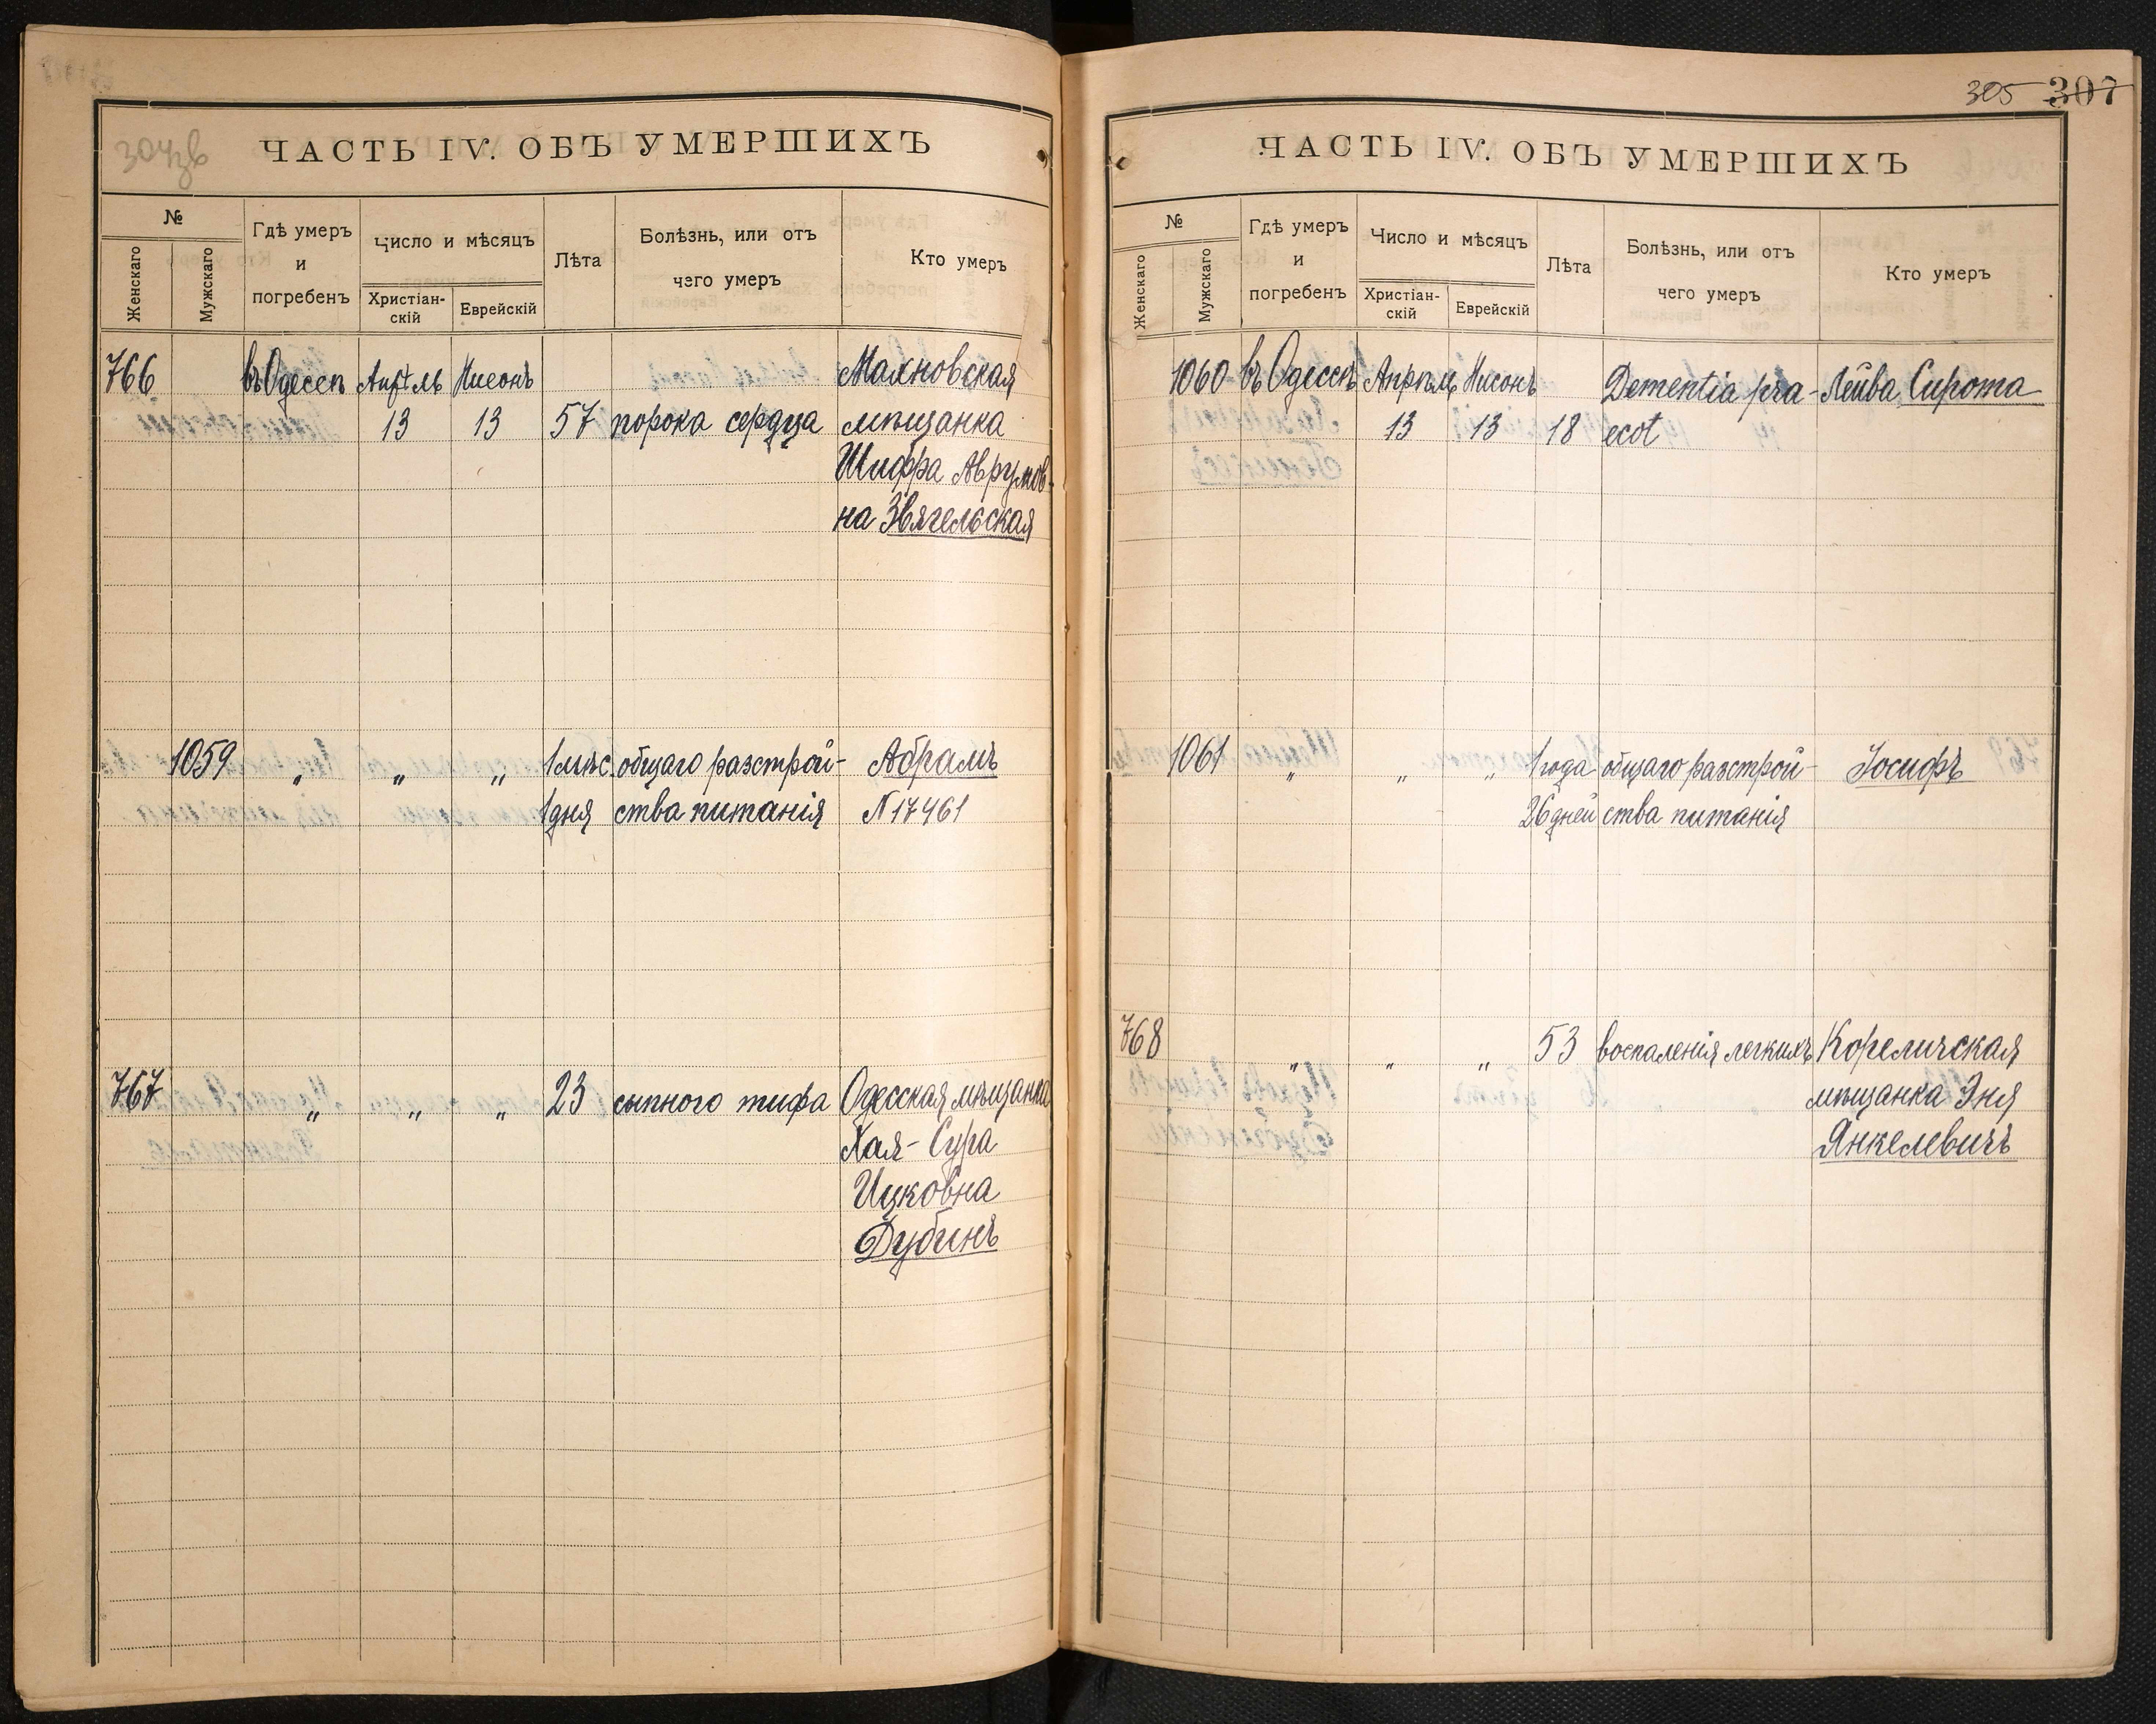 304зв
ЧАСТЬ IV. ОБЪ УМЕРШИХЪ
№
Женскаго
Мужскаго
Гдѣ умеръ
и
погребенъ
Число и мѣсяцъ
Христіан-
скій
Еврейскій
Лѣта
Болѣзнь, или отъ
чего умеръ
Кто умеръ
766 въ Одессѣ Апрѣль Нисонъ Махновская
13 13 57 порока сердца мѣщанка
Шифра Аврумов-
на Звягельская
1059 " " " 1 мѣс. общаго разстрой- Абрамъ
1 дня ства питанія N 17461
767 " " " 23 сыпного тифа Одесская мѣщанка
Хая-Сура
Ицковна
Дубинъ
305 307
ЧАСТЬ IV. ОБЪ УМЕРШИХЪ
№
Женскаго
Мужскаго
Гдѣ умеръ
и
погребенъ
Число и мѣсяцъ
Христіан-
скій
Еврейскій
Лѣта
Болѣзнь, или отъ
чего умеръ
Кто умеръ
1060 въ Одессѣ Апрѣль Нисонъ Dementia pra- Лейва Сирота
13 13 18 ecot
1061 " " " 1 года общаго разстрой- Іосифъ
26 дней ства питанія
768 " " " 53 воспаленія легкихъ Кореличская
мѣщанка Эня
Янкелевичъ